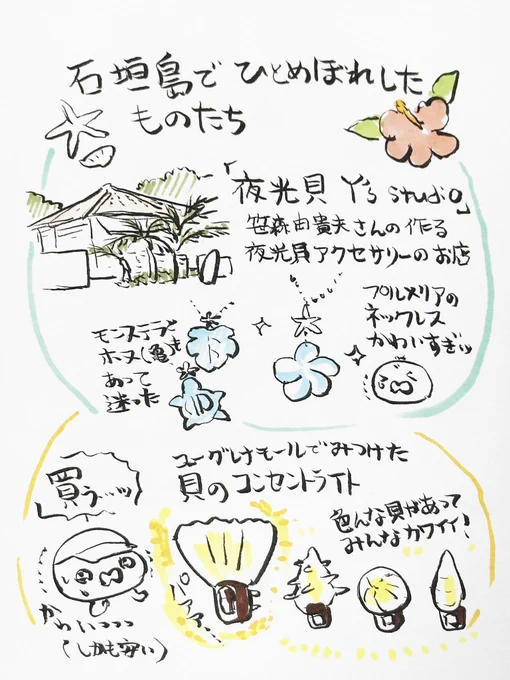 石垣島でひとめぼれした
ものたち
「夜光貝 Y's studio」
笹森由貴夫さんの作る
夜光貝アクセサリーのお店
プルメリアの
ネックレス
かわいすぎッ
モンステラや
ホヌ(亀)も
あって
迷った
ユーグレナモールでみつけた
貝のコンセントライト
買うッッ
色んな貝があって
みんなカワイイ!
パアア…
かわいっっっ
(しかも安い)